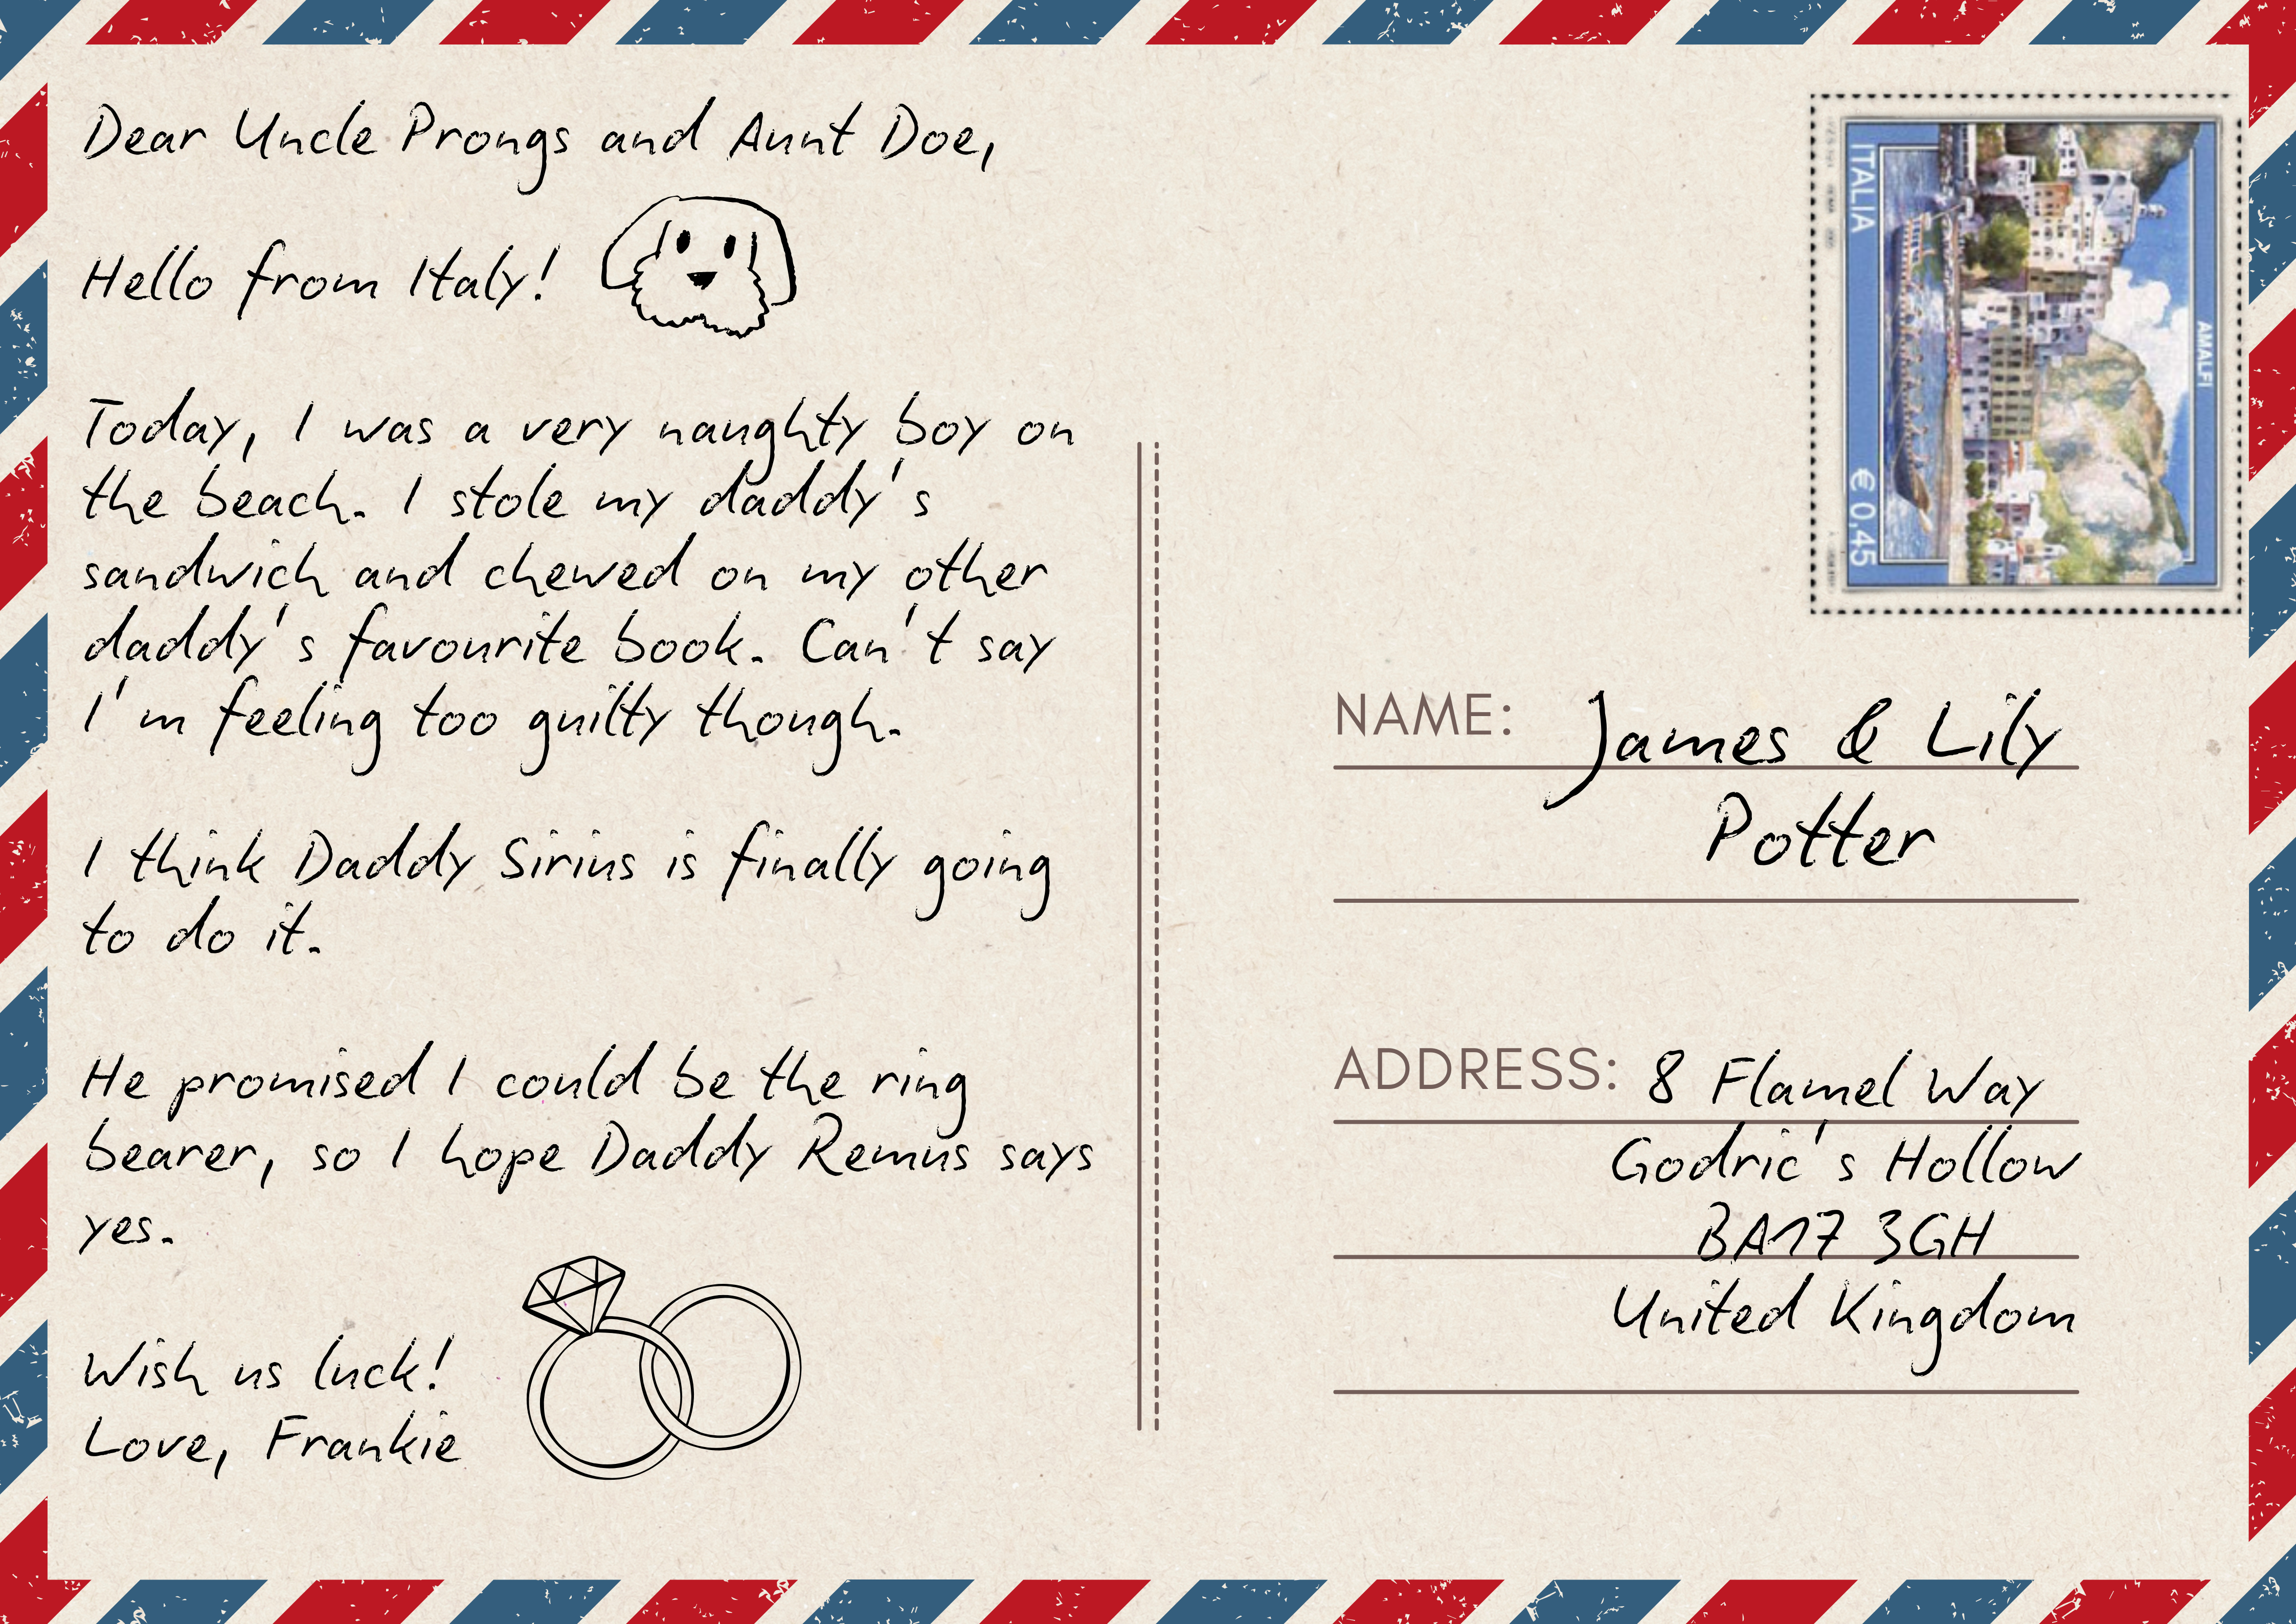 Dear Uncle Prongs and Aunt Doe,
Hello from Italy!
Today, I was a very naughty boy on
the beach. I stole my daddy's
sandwich and chewed on my other
daddy's favourite book. Can't say
I'm feeling too guilty though.
I think Daddy Sirius is finally going
to do it.
He promised I could be the ring
bearer, so I hope Daddy Remus says
yes.
Wish us luck!
Love, Frankie
ITALIA
€ 0,45
AMALFI
NAME: James & Lily
Potter
ADDRESS: 8 Flamel Way
Godric's Hollow
BA17 3GH
United Kingdom